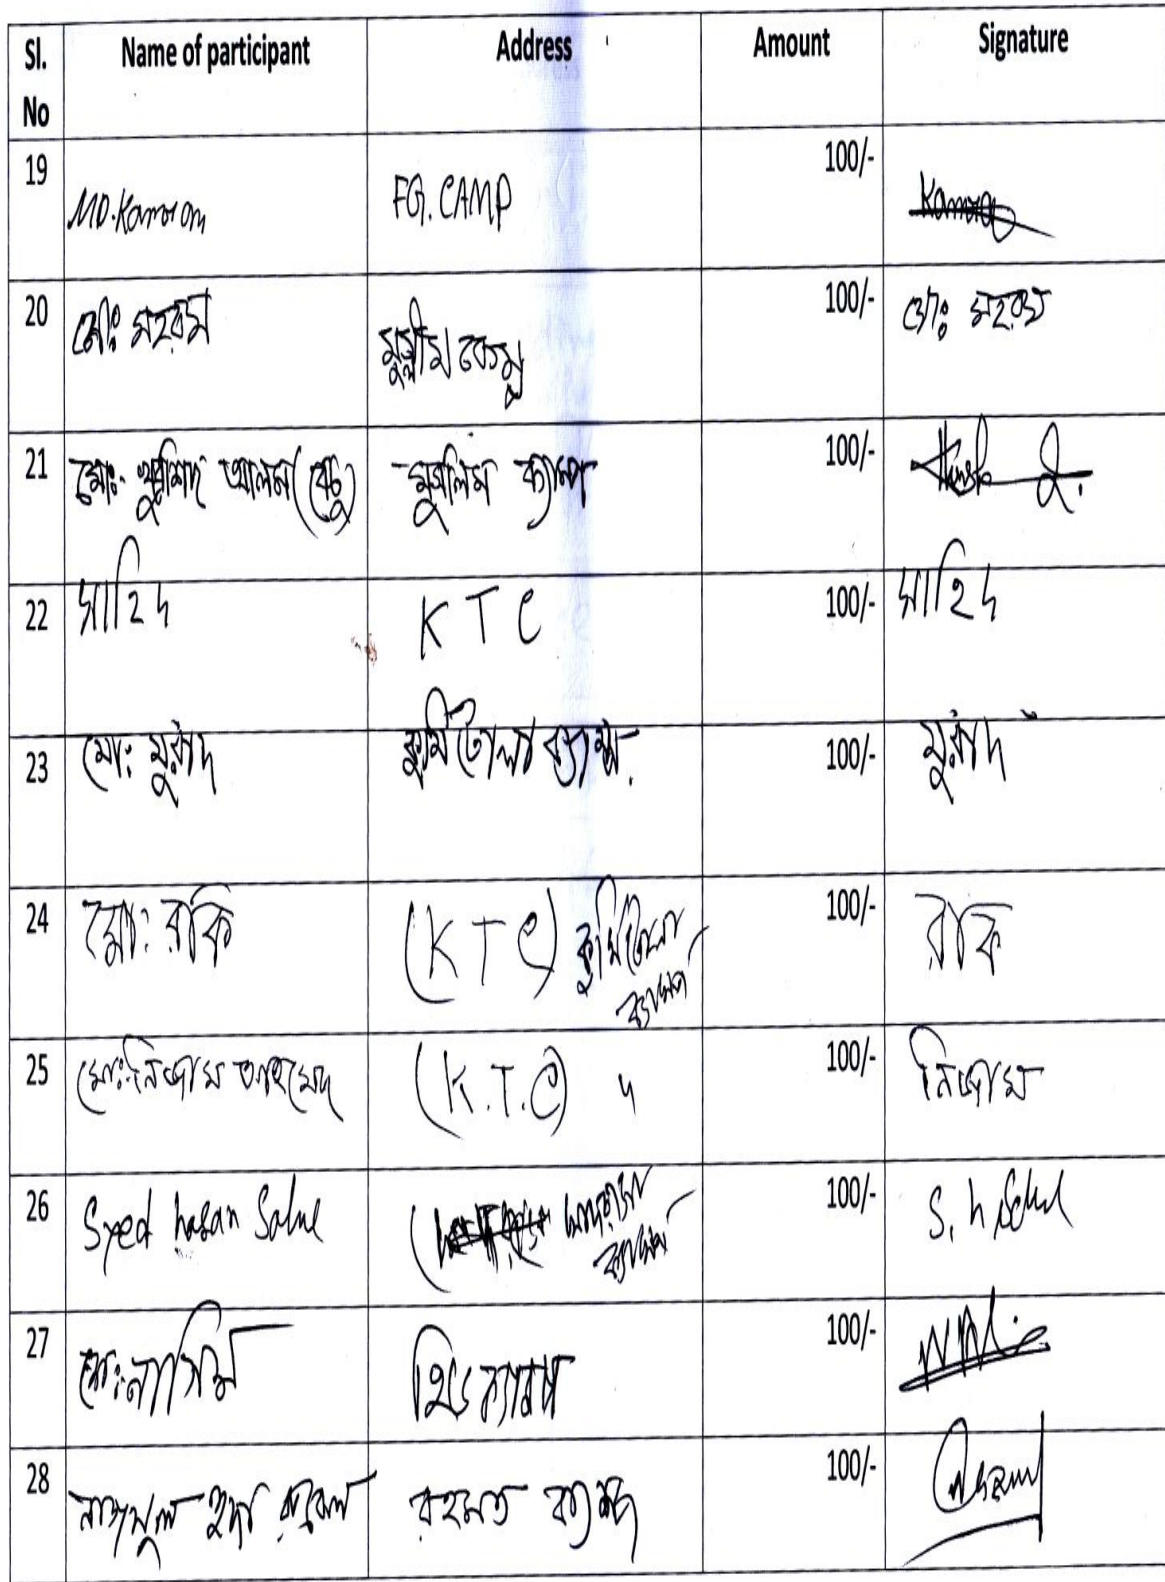 Sl. No Name of participant Address Amount Signature
19 MD. Kamran FG. CAMP 100/- Kamran
20 মোঃ মহরম মুস্লীম কেম্প 100/- মোঃ মহরম
21 মোঃ খুরশিদ আলম (বেচু) মুসলিম ক্যাম্প 100/-
22 সাহিদ K T C 100/- সাহিদ
23 মোঃ মুরাদ কুর্মিটোলা ক্যাম্প. 100/- মুরাদ
24 মোঃ রকি (K T C) কুর্মিটোলা ক্যাম্প 100/- রকি
25 মোঃ নিজাম আহমেদ (K.T.C) 100/- নিজাম
26 Syed hasan ক্যাম্প 100/- S. h
27 মোঃ নাসিম ক্যাম্প 100/-
28 নাজমুল হুদা রুবেল রহমত ক্যাম্প 100/-